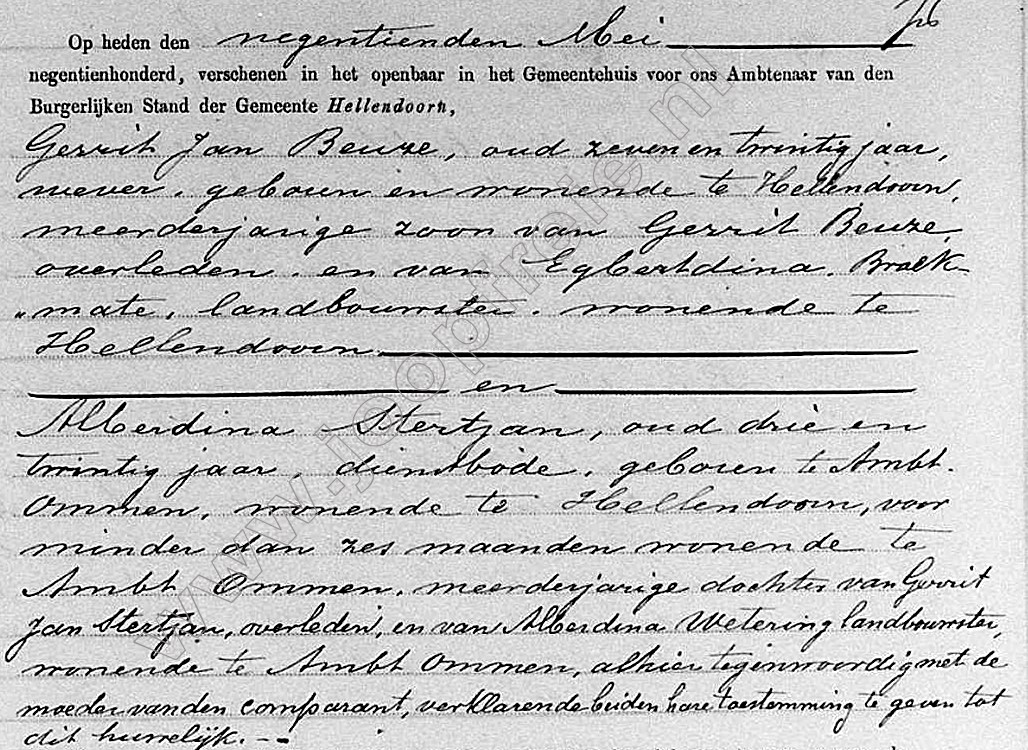 Op heden den negentienden Mei
negentienhonderd, verschenen in het openbaar in het Gemeentehuis voor ons Ambtenaar van den
Burgerlijken Stand der Gemeente Hellendoorn,
Gerrit Jan Beuze, oud zeven en twintig jaar,
wever, geboren en wonende te Hellendoorn,
meerderjarige zoon van Gerrit Beuze,
overleden, en van Egbertdina Broek-
„mate, landbouwster, wonende te
Hellendoorn.
en
Alberdina Stertjan, oud drie en
twintig jaar, dienstbode, geboren te Ambt-
Ommen, wonende te Hellendoorn, voor
minder dan zes maanden wonende te
Ambt Ommen, meerderjarige dochter van Gerrit
Jan Stertjan, overleden, en van Alberdina Wetering landbouwster,
wonende te Ambt Ommen, alhier tegenwoordig met de
moeder van den comparant, verklarende beiden hare toestemming te geven tot
dit huwelijk. --
www.jeopfreriel.nl